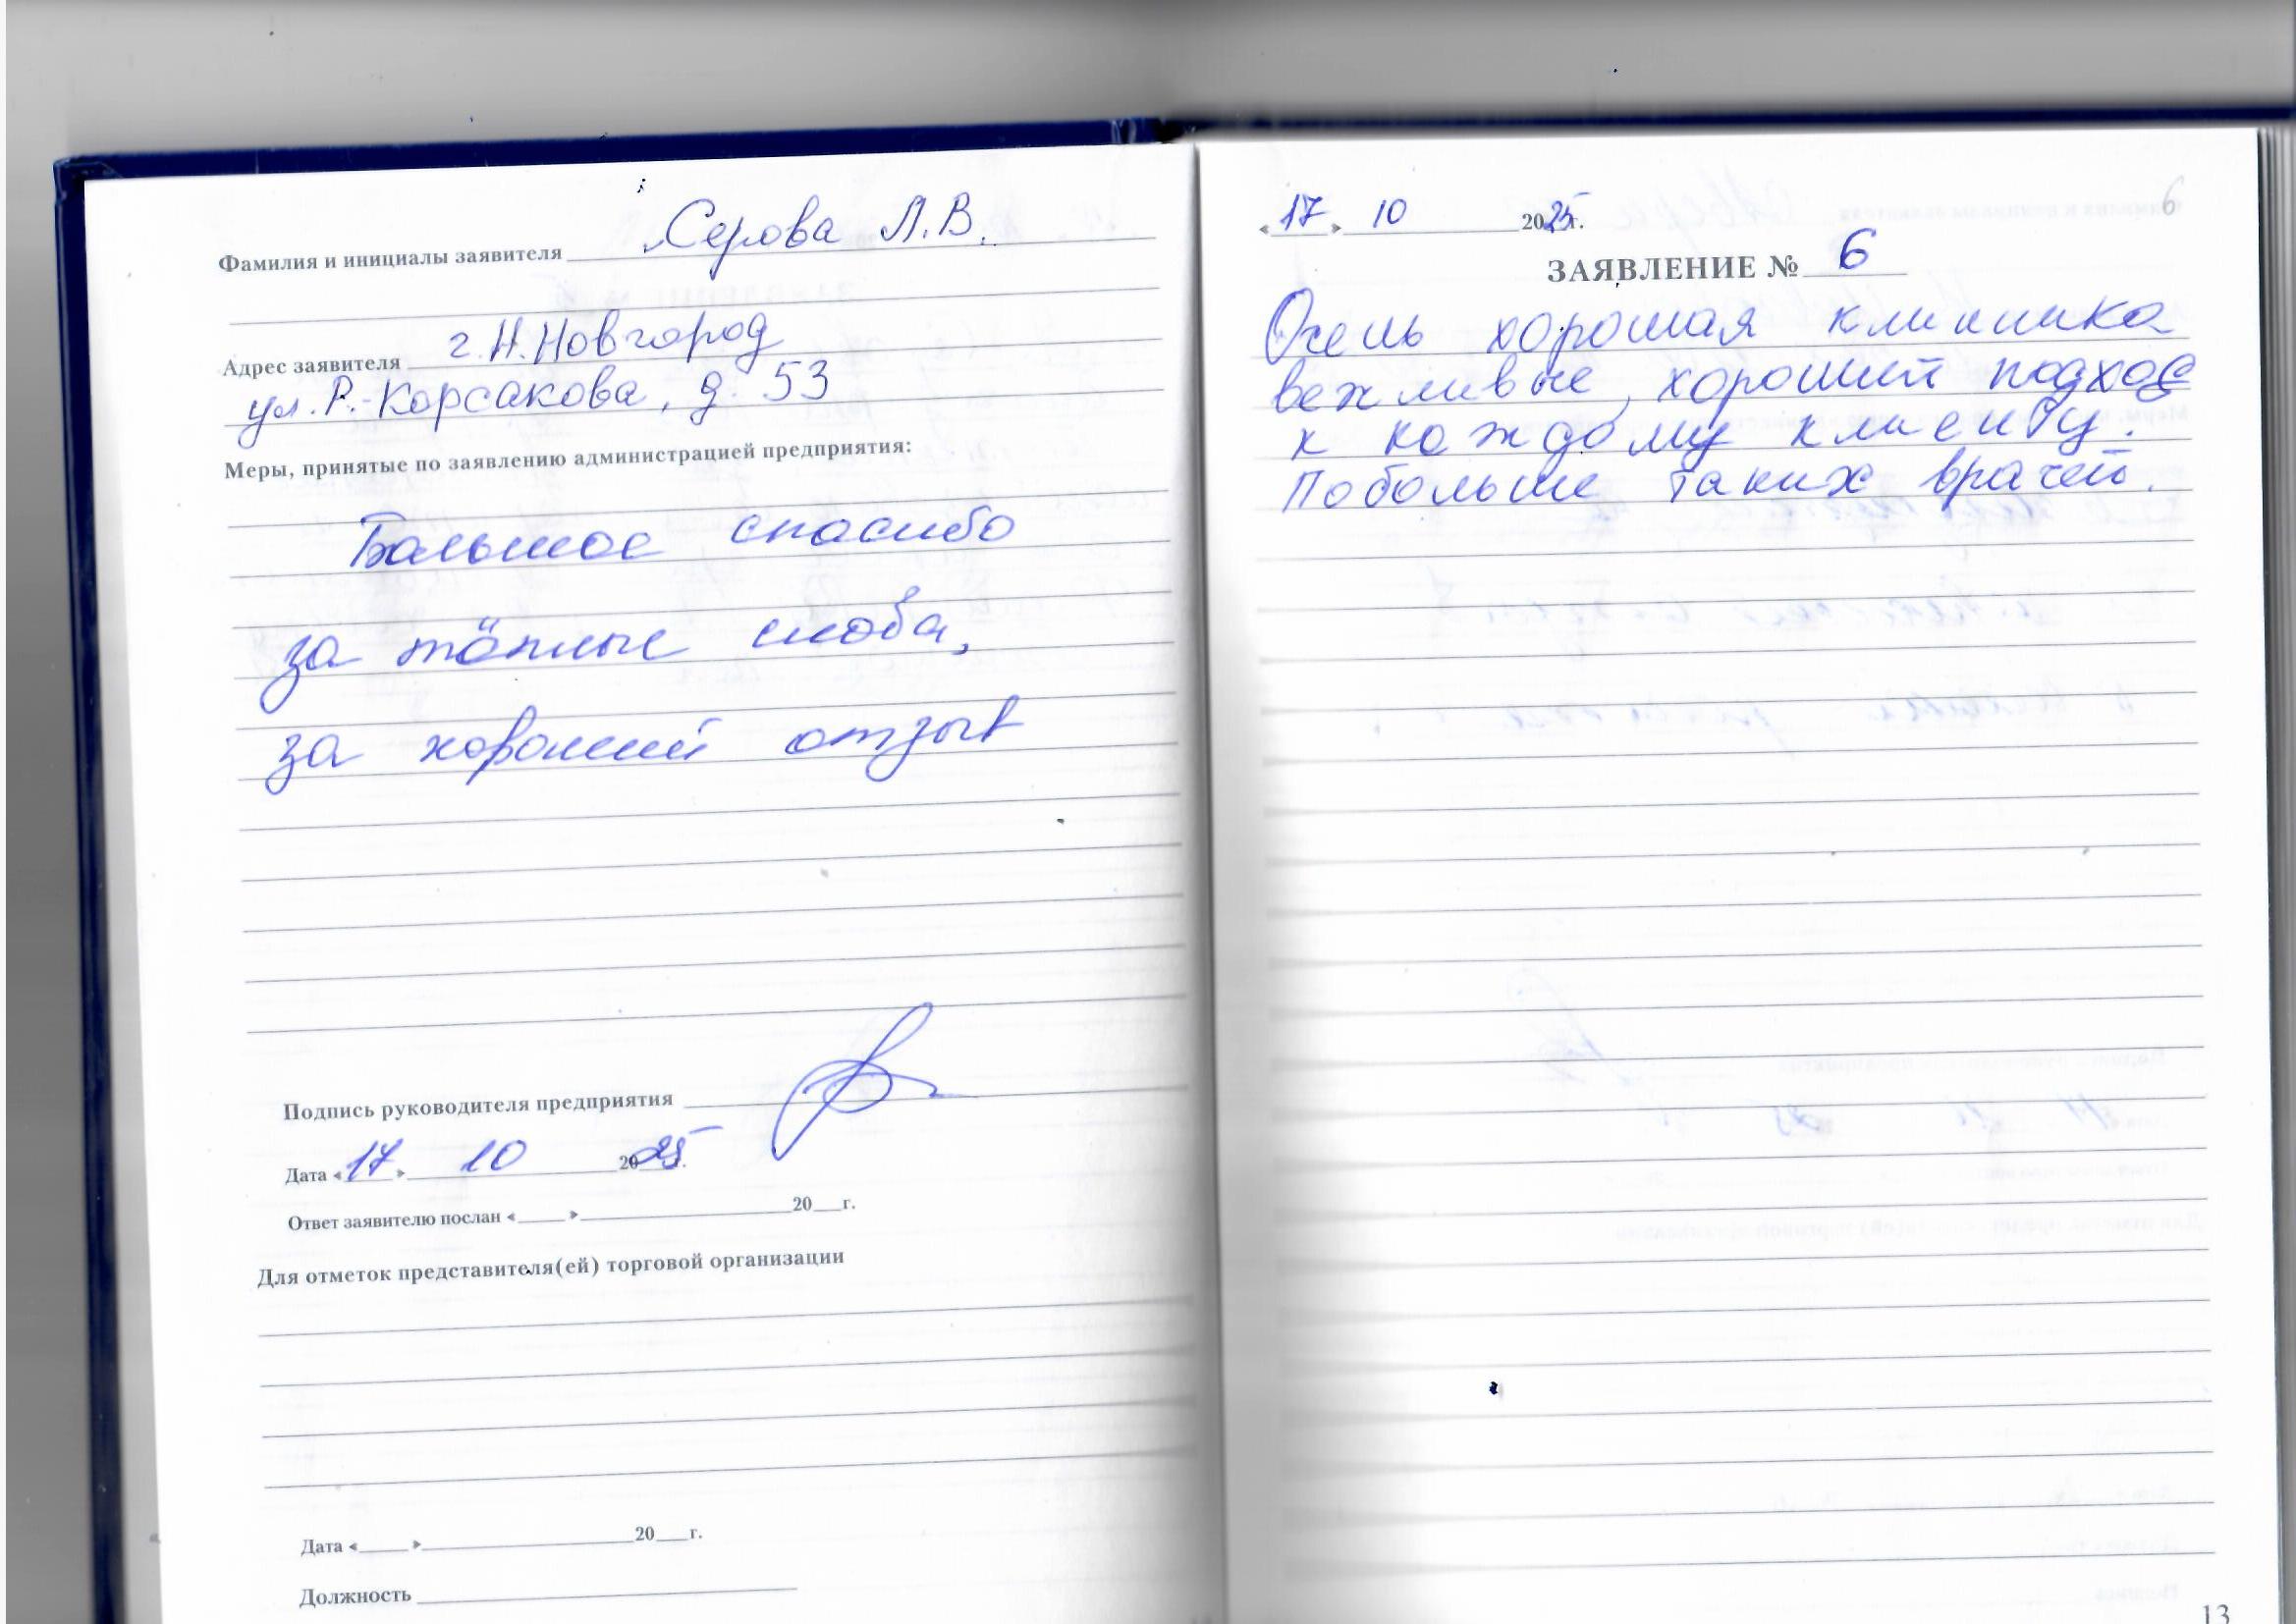 Фамилия и инициалы заявителя Серова Л.В.
Адрес заявителя г.Н.Новгород
ул.Р.-Корсакова, д. 53
Меры, принятые по заявлению администрацией предприятия:
Большое спасибо
за тёплые слова,
за хороший отзыв
Подпись руководителя предприятия
Дата «17» 10 2025г.
Ответ заявителю послан «____» ____ 20__г.
Для отметок представителя(ей) торговой организации
Дата «____» ____ 20__г.
Должность
6
«17» 10 2025г.
ЗАЯВЛЕНИЕ № 6
Очень хорошая клиника
вежливые, хороший подход
к каждому клиенту.
Побольше таких врачей.
13